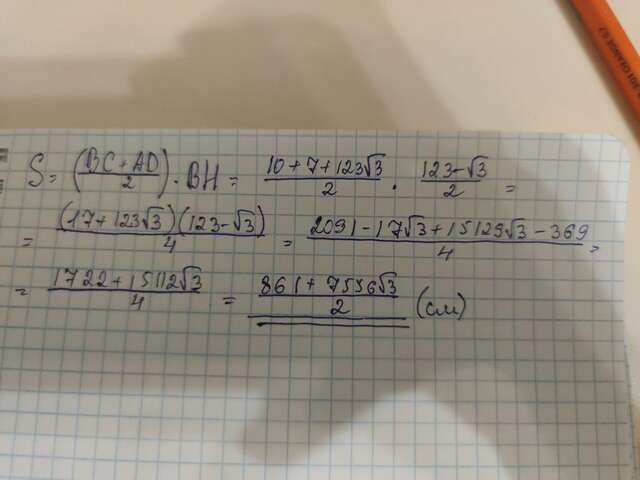 S = (BC + AD / 2) · BH = 10 + 7 + 123√3 / 2 · 123 - √3 / 2 =
= (17 + 123√3)(123 - √3) / 4 = 2091 - 17√3 + 15129√3 - 369 / 4 =
= 1722 + 15112√3 / 4 = 861 + 7556√3 / 2 (см)